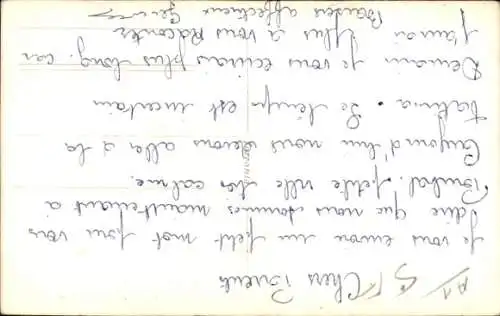 Chers Parents
Je vous envoie un petit mot pour vous
dire que nous sommes maintenant à
Pombal. petite ville très calme.
Aujourd'hui nous devons aller à la
Le temps est incertain
Demain je vous écrirais plus long. car
j'aurai plus à vous raconter
Baisers affectueux